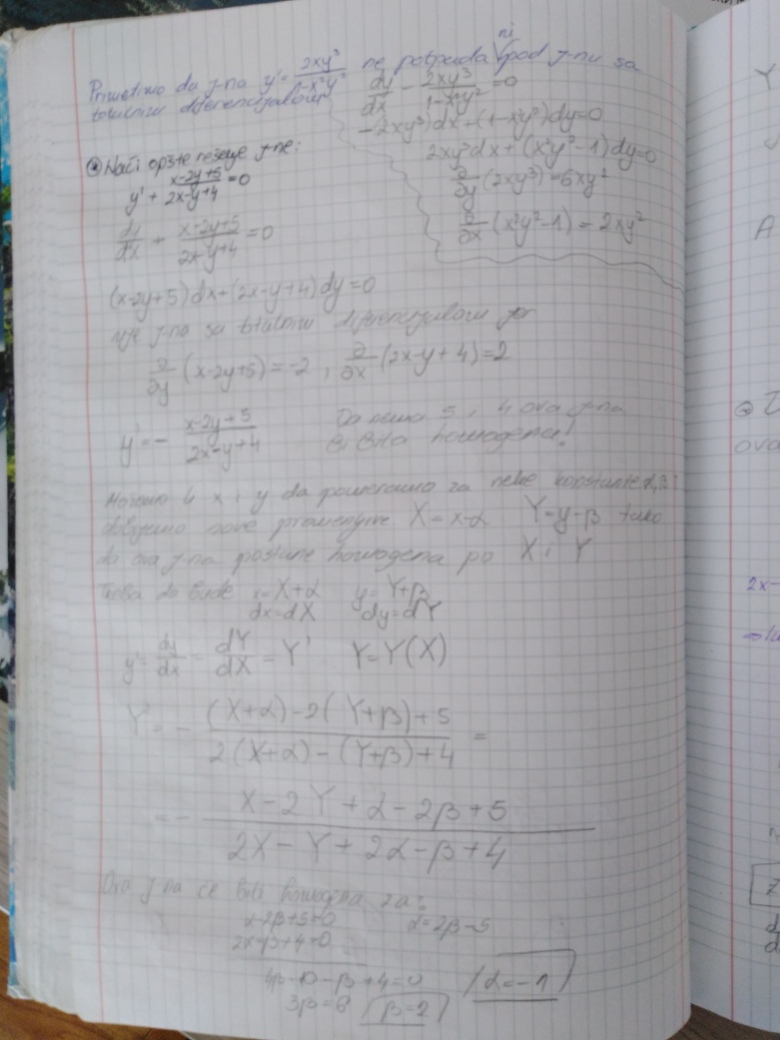 Primetimo da j-na y' = 2xy³/(1-x²y²) ne potpada ni pod j-nu sa
totalnim diferencijalom
dy/dx - 2xy³/(1-x²y²) = 0
-2xy³)dx + (1-x²y²)dy=0
2xy³dx + (x²y²-1)dy=0
∂/∂y (2xy³) = 6xy²
∂/∂x (x²y²-1) = 2xy²
Naći opšte rešenje j-ne:
y' + (x-2y+5)/(2x-y+4) = 0
dy/dx + (x-2y+5)/(2x-y+4) = 0
(x-2y+5)dx+(2x-y+4)dy=0
nije j-na sa totalnim diferencijalom jer
∂/∂y (x-2y+5) = -2 , ∂/∂x (2x-y+4) = 2
y' = - (x-2y+5)/(2x-y+4)
Da nema 5 i 4 ova j-na
bi bila homogena!
x i y da pomeramo za neke konstante α, β i
dobijamo nove promenljive X=x-α Y=y-β tako
da ova j-na postane homogena po X i Y
Treba da bude x=X+α y=Y+β
dx=dX dy=dY
y' = dy/dx = dY/dX = Y' Y=Y(X)
Y' = - ((X+α)-2(Y+β)+5)/(2(X+α)-(Y+β)+4) =
= - (X-2Y+α-2β+5)/(2X-Y+2α-β+4)
Ova j-na će biti homogena za:
α-2β+5=0 α=2β-5
2α-β+4=0
4β-10-β+4=0 α=-1
3β=6 β=2